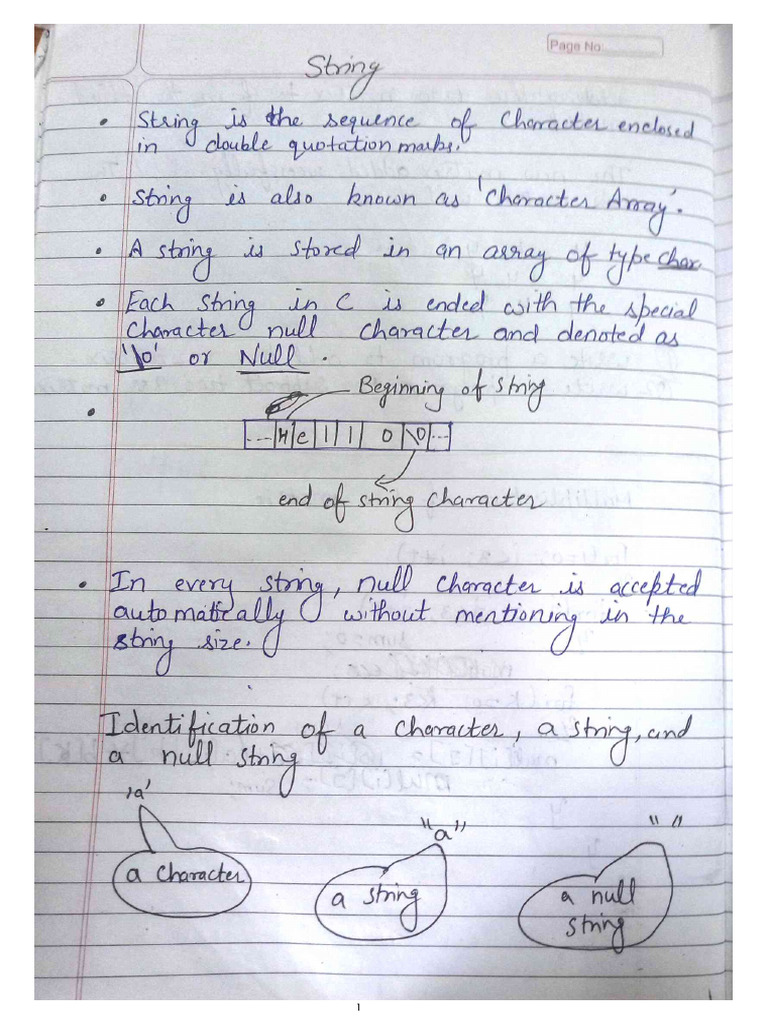 Page No:
String
• String is the sequence of Character enclosed
in double quotation marks.
• String is also known as 'Character Array'.
• A string is stored in an array of type char
• Each string in C is ended with the special
character null character and denoted as
'\0' or Null.
• Beginning of string
... H e l l o \0 ...
end of string character
• In every string, null character is accepted
automatically without mentioning in the
string size.
Identification of a character, a string, and
a null string
'a'
"a"
" "
a character
a string
a null
string
1